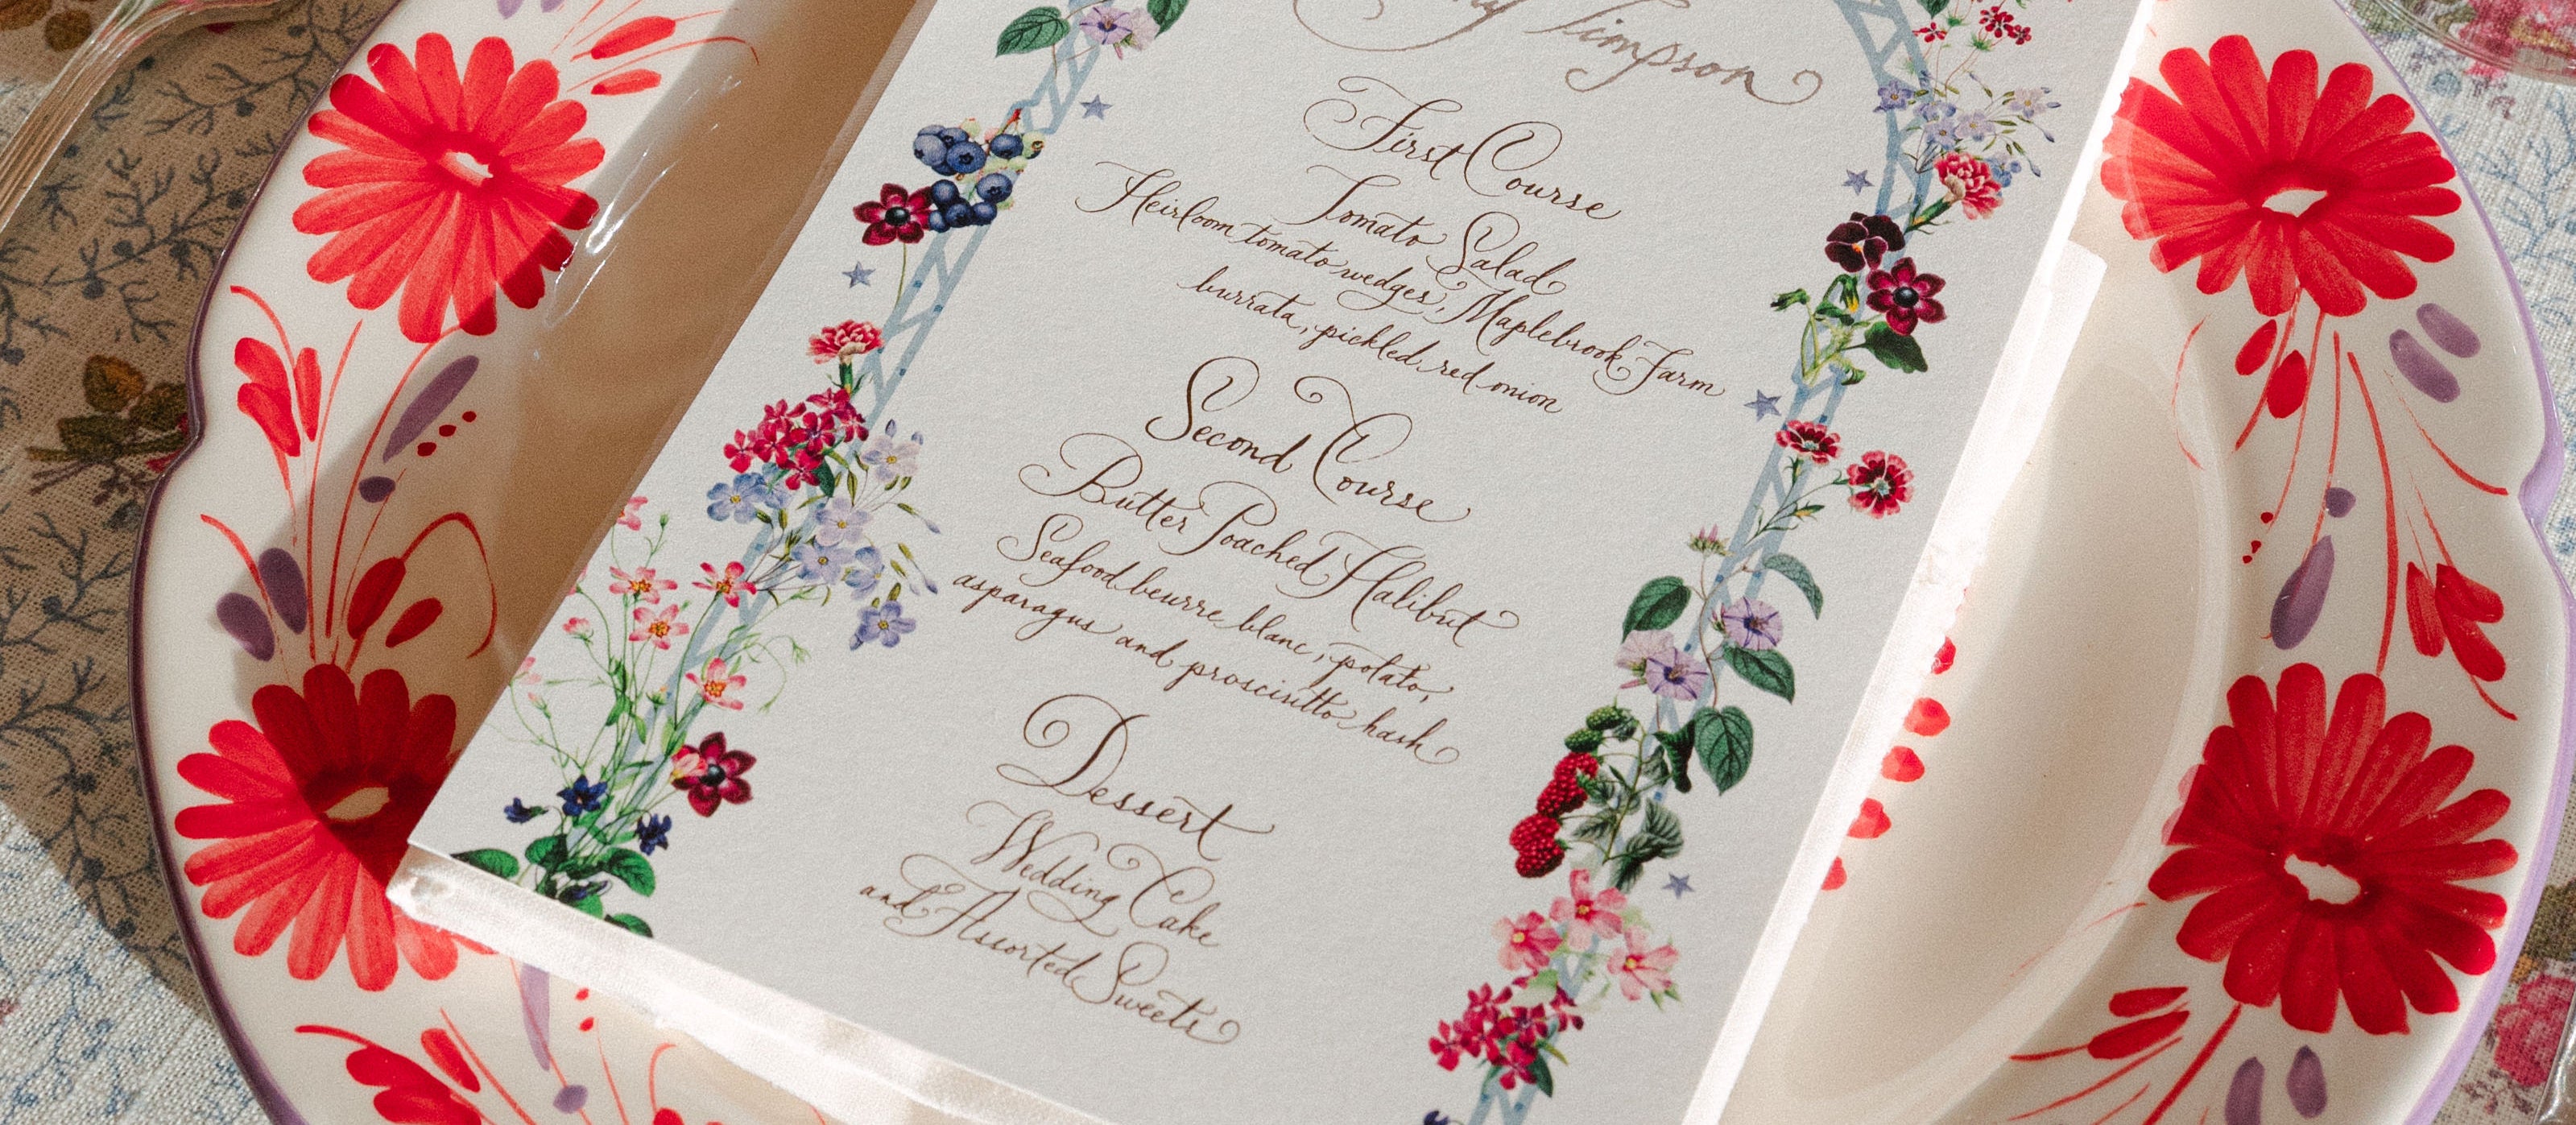 Timpson
First Course
Tomato Salad
Heirloom tomato wedges, Maplebrook Farm
burrata, pickled red onion
Second Course
Butter Poached Halibut
Seafood beurre blanc, potato,
asparagus and prosciutto hash
Dessert
Wedding Cake
and Assorted Sweets